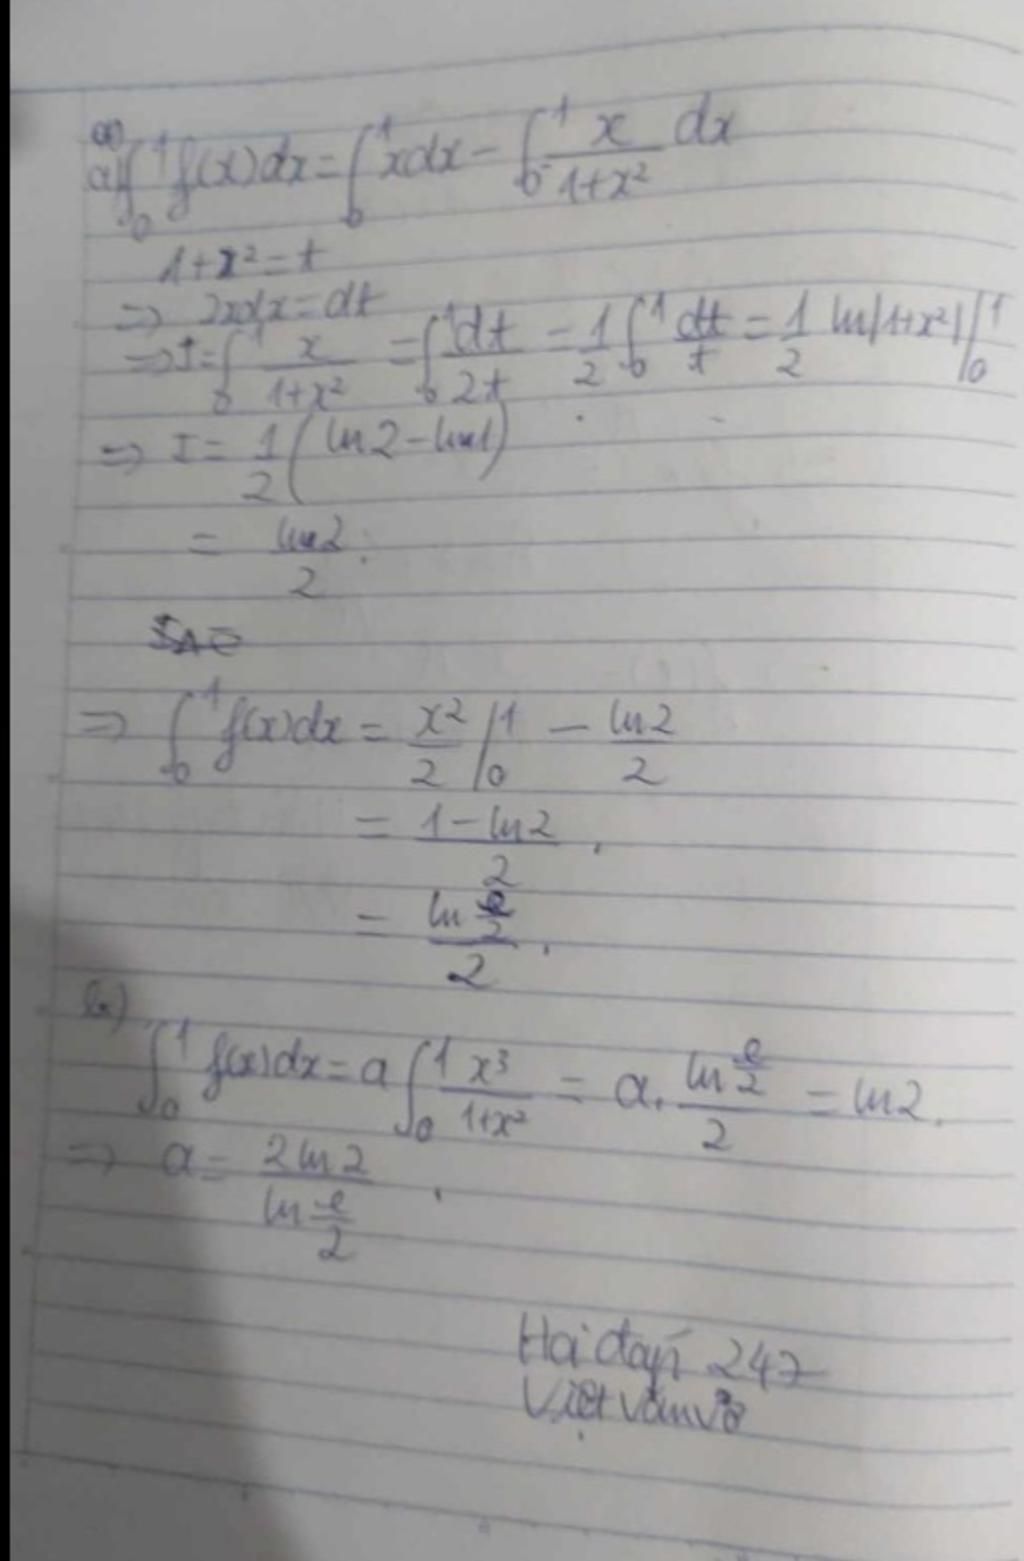 a) ∫₀¹ f(x)dx = ∫₀¹ xdx - ∫₀¹ x/(1+x²) dx
1+x² = t
⇒ 2xdx = dt
⇒ I = ∫₀¹ x/(1+x²) = ∫₀¹ dt/2t = 1/2 ∫₀¹ dt/t = 1/2 ln|1+x²| |₀¹
⇒ I = 1/2 (ln2 - ln1)
= ln2/2.
⇒ ∫₀¹ f(x)dx = x²/2 |₀¹ - ln2/2
= (1 - ln2)/2.
= (ln e/2)/2.
b)
∫₀¹ f(x)dx = a ∫₀¹ x³/(1+x²) = a. (ln e/2)/2 = ln2.
⇒ a = 2ln2/(ln e/2).
Hỏi đáp 247